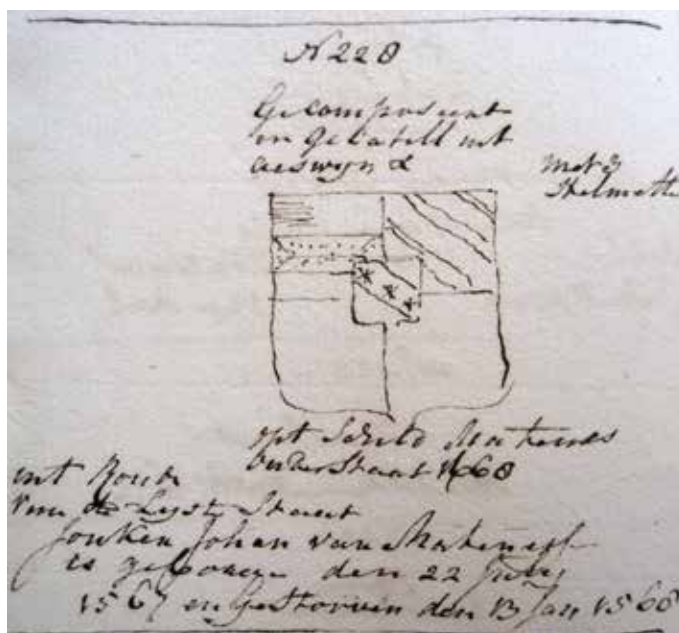 N 228
Gecomponeert
en Geëcartell met
aeswyn &
met 3
Helmette
opt Schild Matenes
onder Staat 1668
int Rondt
van de Lyst Staat
Jonker Johan van Matenesse
is gebooren den 22 July
1567 en Gestorven den 13 Jan 1568